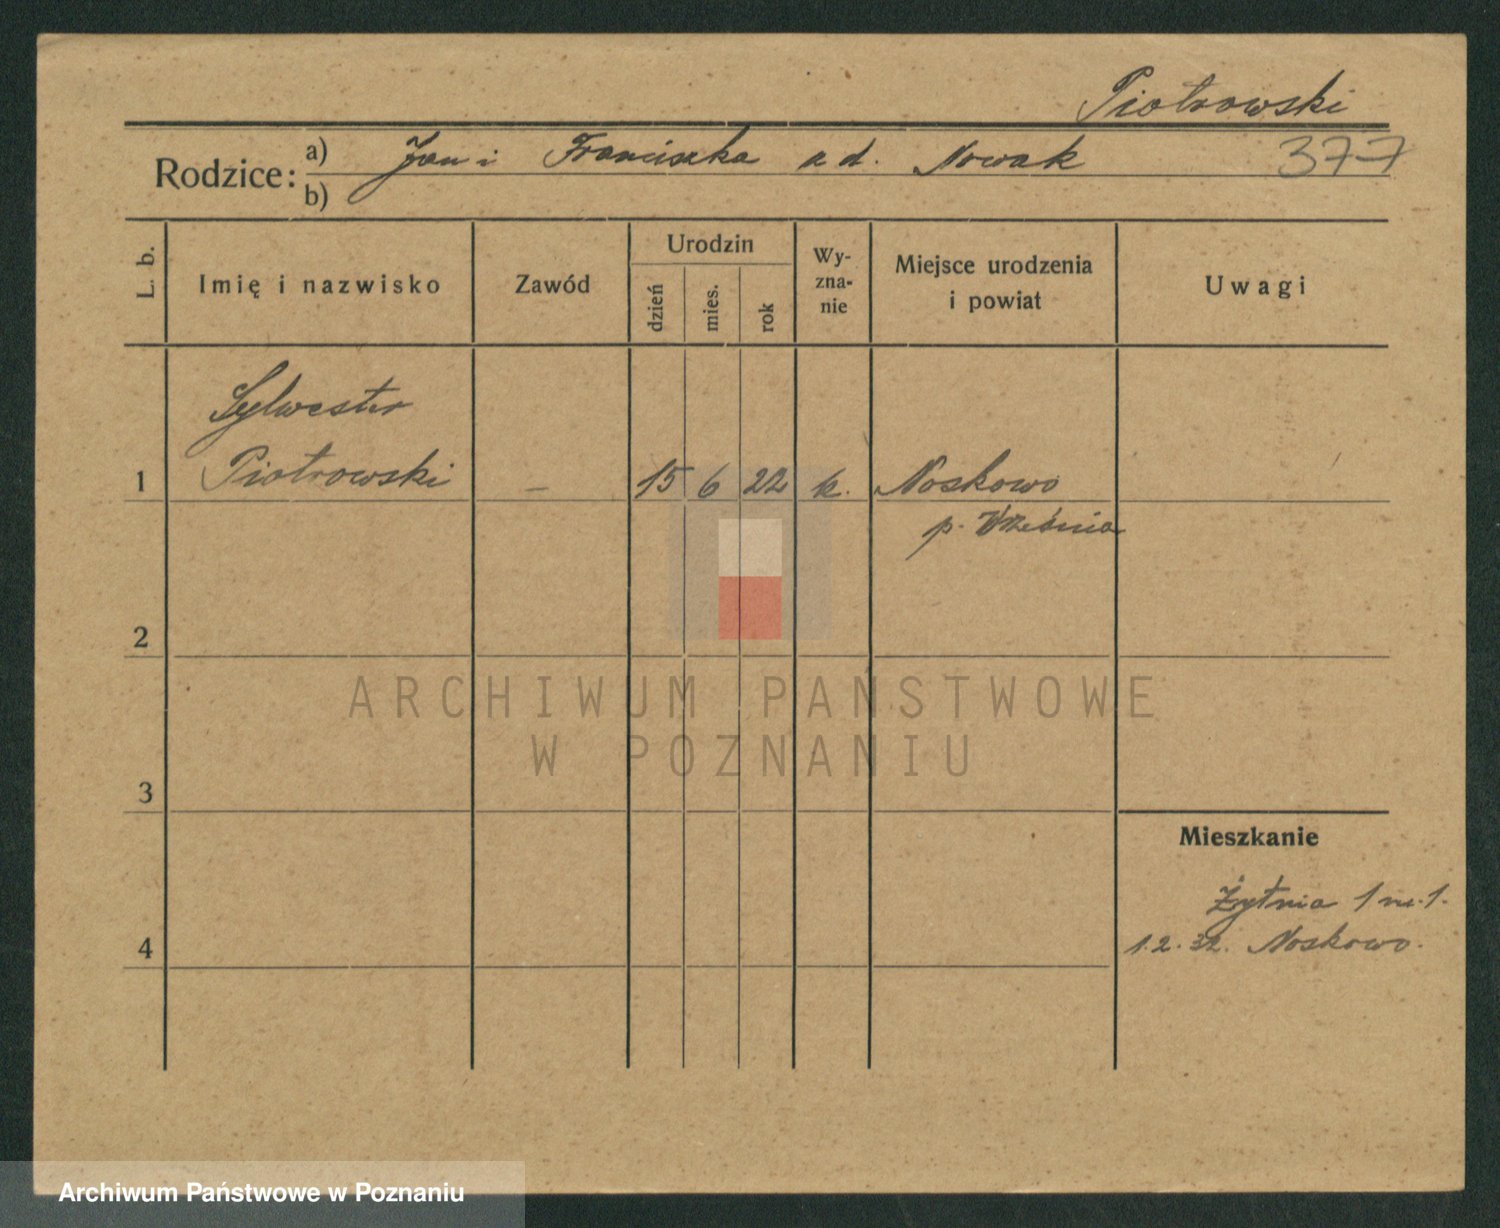 Piotrowski
Rodzice: a) Jan i Franciszka z d. Nowak 377
b)
L. b.
Imię i nazwisko
Zawód
Urodzin
dzień
mies.
rok
Wy-
zna-
nie
Miejsce urodzenia
i powiat
Uwagi
Sylwester
1 Piotrowski – 15 6 22 k. Noskowo
p. Września
2
ARCHIWUM PAŃSTWOWE
W POZNANIU
3
Mieszkanie
Żytnia 1 m. 1.
4 1.2.32. Noskowo.
Archiwum Państwowe w Poznaniu